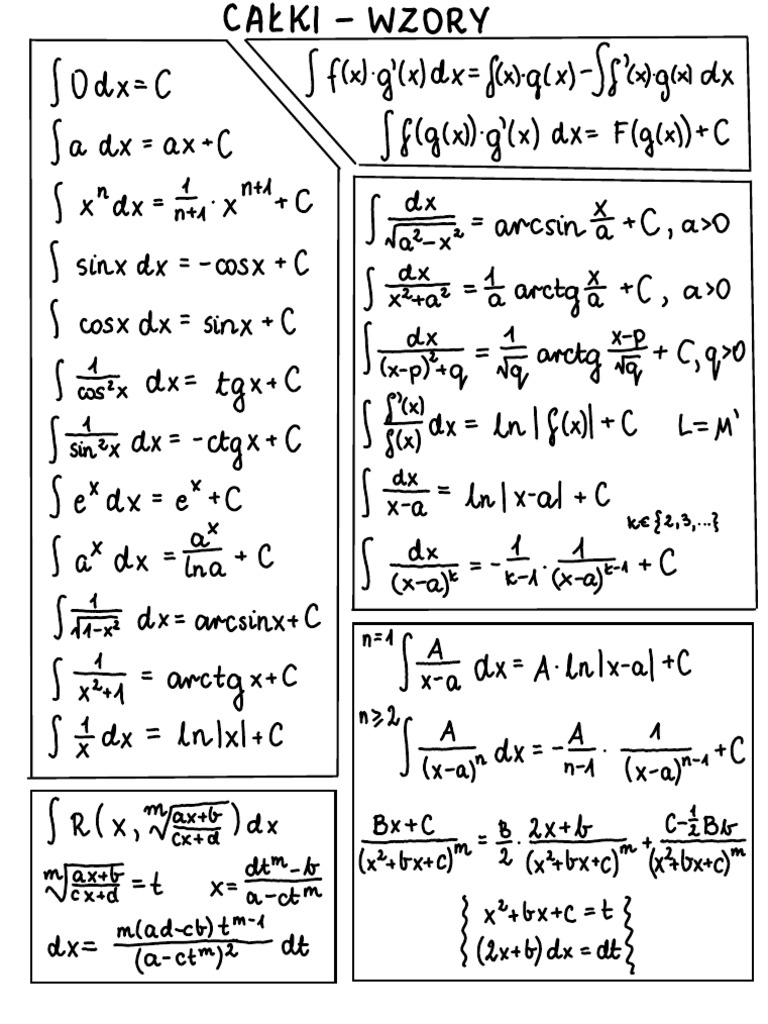 CAŁKI – WZORY
∫ 0 dx = C
∫ a dx = ax + C
∫ xⁿ dx = 1/(n+1) · x^(n+1) + C
∫ sinx dx = -cosx + C
∫ cosx dx = sinx + C
∫ 1/cos²x dx = tgx + C
∫ 1/sin²x dx = -ctgx + C
∫ e^x dx = e^x + C
∫ a^x dx = a^x/lna + C
∫ 1/√(1-x²) dx = arcsinx + C
∫ 1/(x²+1) = arctgx + C
∫ 1/x dx = ln|x| + C
∫ f(x)·g'(x) dx = f(x)·g(x) - ∫ f'(x)·g(x) dx
∫ f(g(x))·g'(x) dx = F(g(x)) + C
∫ dx/√(a²-x²) = arcsin x/a + C, a>0
∫ dx/(x²+a²) = 1/a arctg x/a + C, a>0
∫ dx/((x-p)²+q) = 1/√q arctg (x-p)/√q + C, q>0
∫ f'(x)/f(x) dx = ln|f(x)| + C L=M'
∫ dx/(x-a) = ln|x-a| + C
k∈{2,3,...}
∫ dx/(x-a)^k = - 1/(k-1) · 1/(x-a)^(k-1) + C
∫ R(x, ᵐ√((ax+b)/(cx+d))) dx
ᵐ√((ax+b)/(cx+d)) = t x = (dt^m - b)/(a - ct^m)
dx = m(ad-cb)t^(m-1)/(a-ct^m)² dt
n=1 ∫ A/(x-a) dx = A·ln|x-a| + C
n≥2 ∫ A/(x-a)ⁿ dx = - A/(n-1) · 1/(x-a)^(n-1) + C
(Bx+C)/(x²+bx+c)^m = B/2 · (2x+b)/(x²+bx+c)^m + (C-½Bb)/(x²+bx+c)^m
{ x²+bx+c = t }
{ (2x+b) dx = dt }